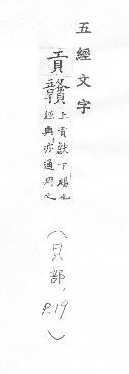 五經文字
貢贛上貢獻下賜也
經典亦通用之
（貝部，P.19）